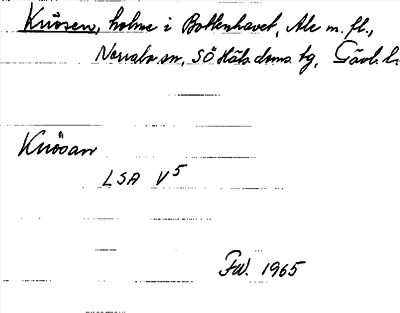 Knösen, holme i Bottenhavet, Ale m. fl.,
Norrala sn, SÖ Häls. doms. tg, Gävl. l.
Knösan
LSA V5
FW. 1965